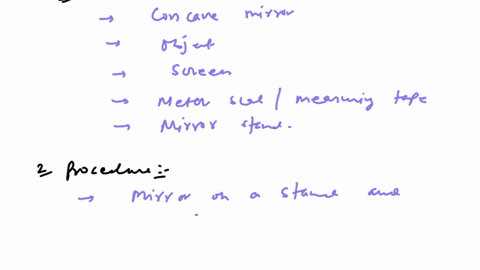 → Concave mirror
→ Object
→ Screen
→ Meter scal / measuring tape
→ Mirror stand.
2 Procedure:-
→ Mirror on a stand and